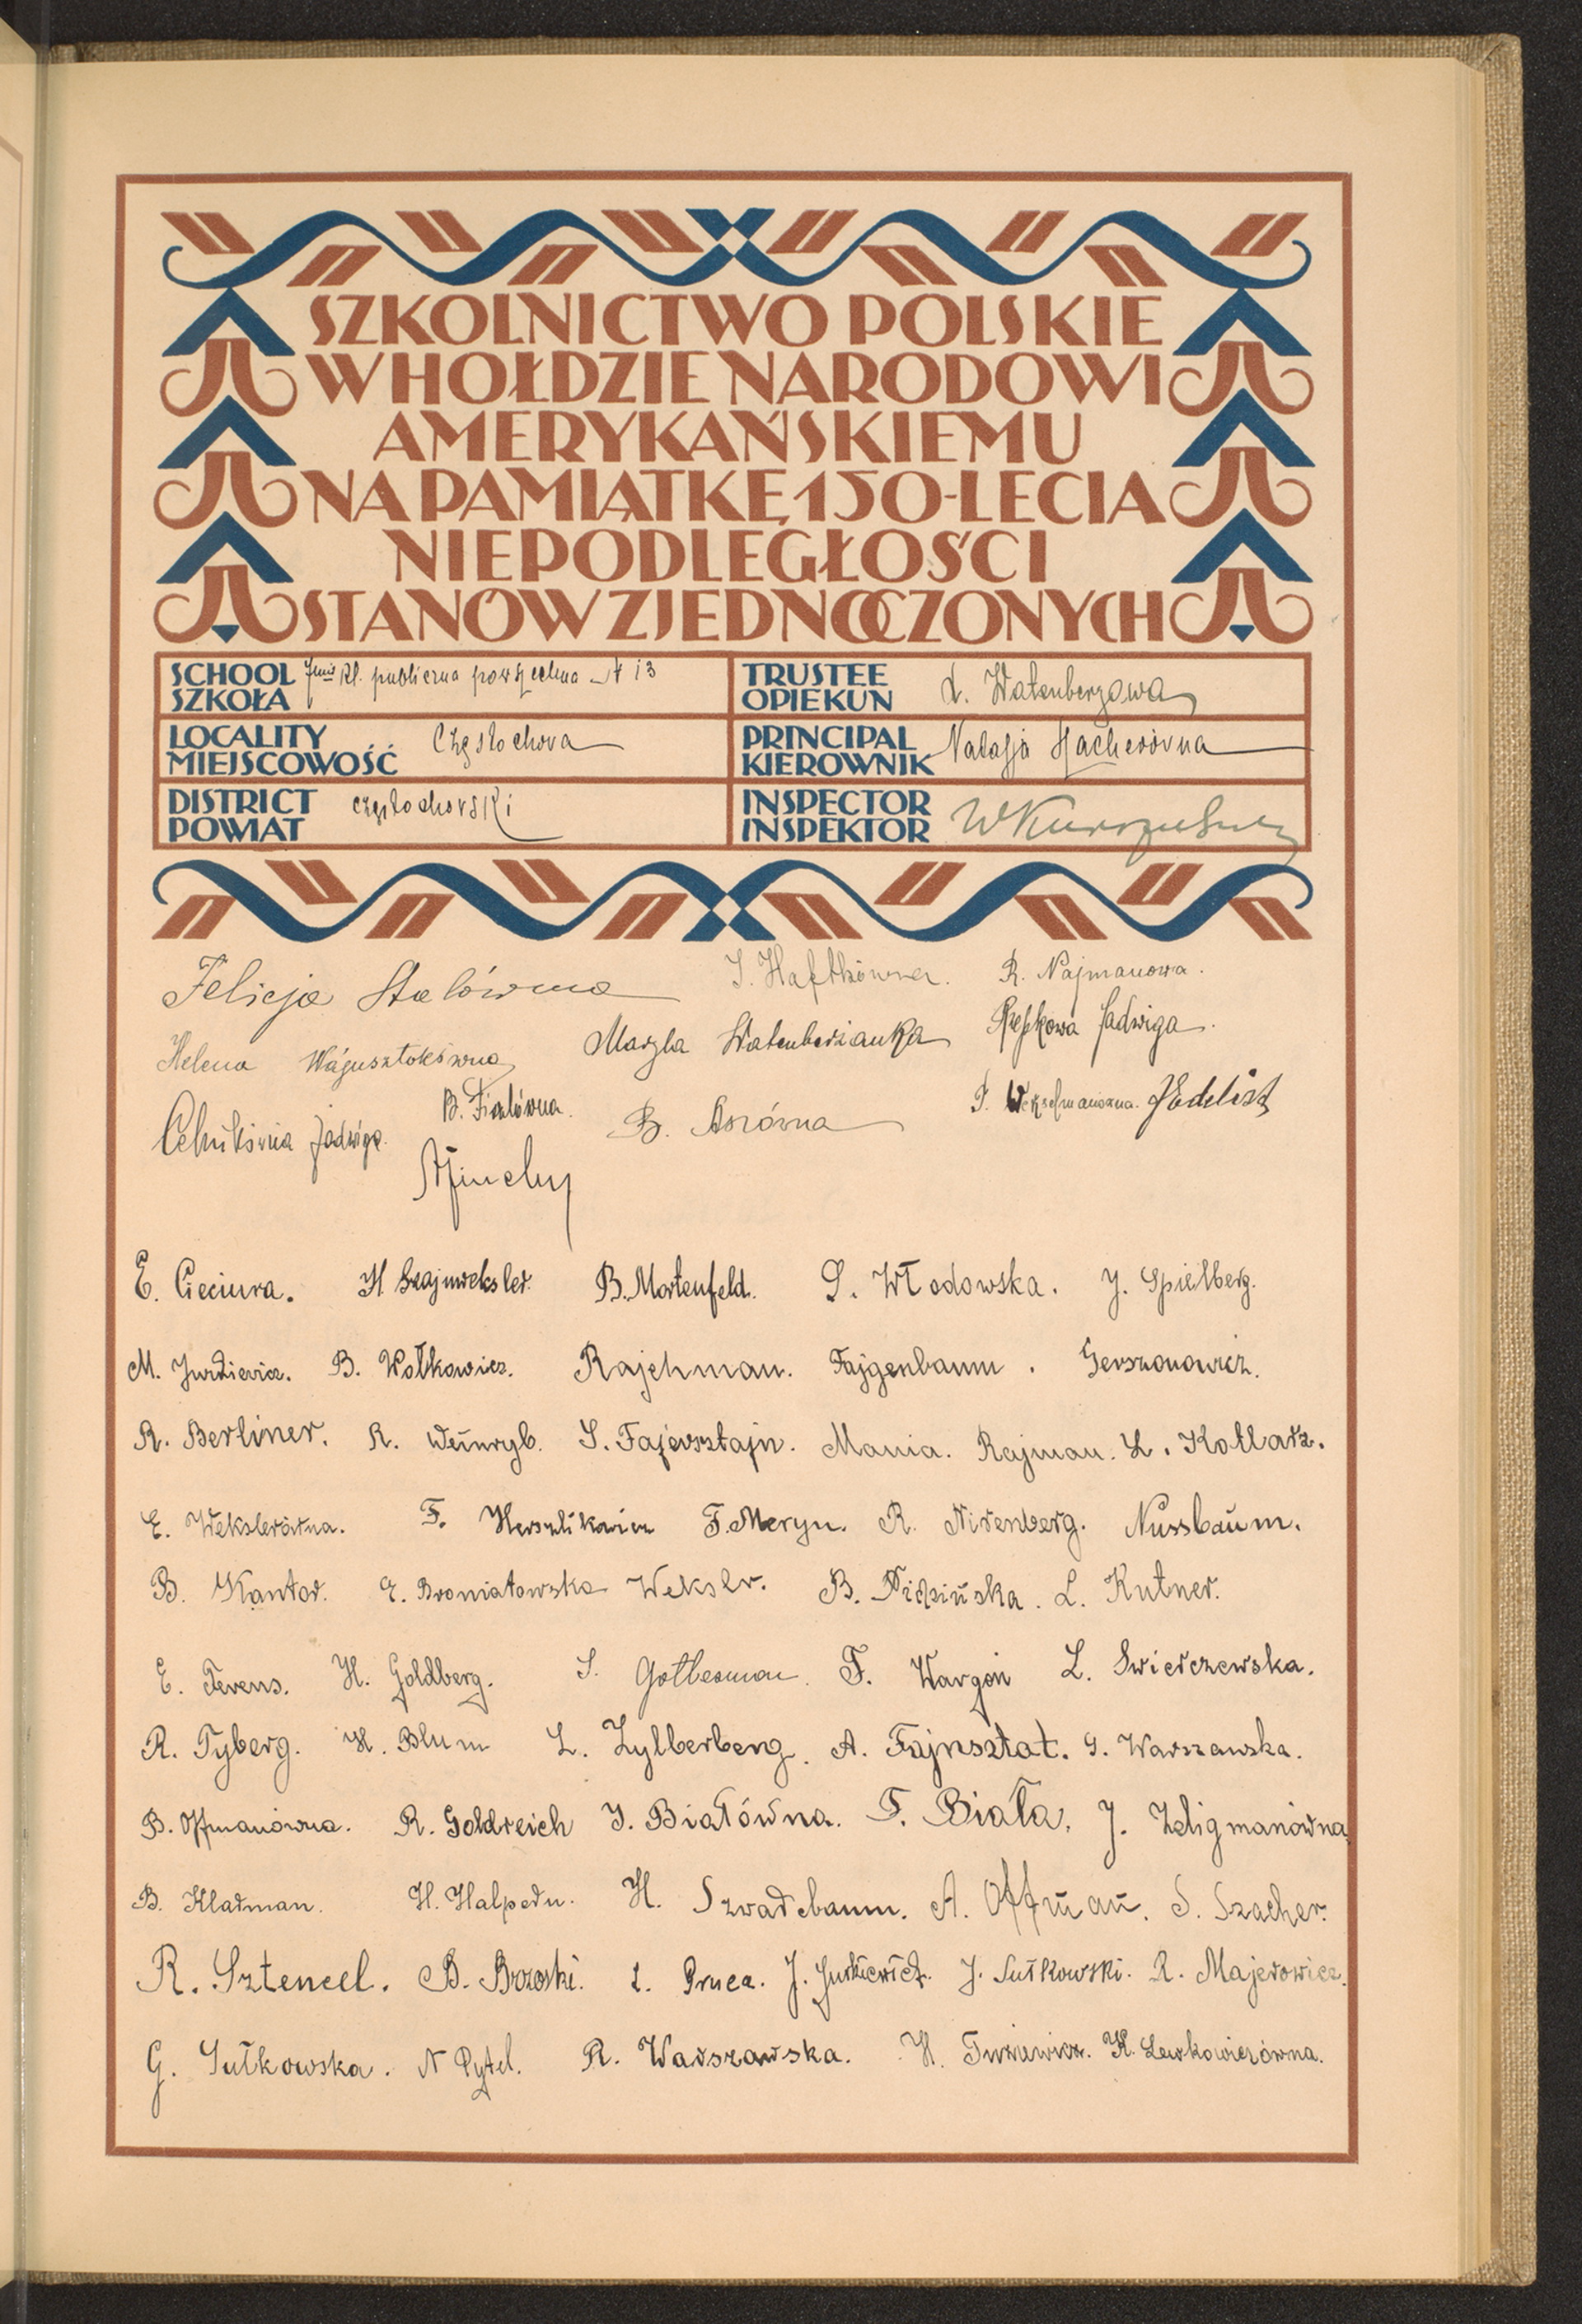 SZKOLNICTWO POLSKIE
W HOŁDZIE NARODOWI
AMERYKAŃSKIEMU
NA PAMIĄTKĘ 150-LECIA
NIEPODLEGŁOŚCI
STANÓW ZJEDNOCZONYCH
SCHOOL
SZKOŁA
7mio kl. publiczna powszechna N 13
TRUSTEE
OPIEKUN
Watenbergowa
LOCALITY
MIEJSCOWOŚĆ
Częstochowa
PRINCIPAL
KIEROWNIK
Natalja Hacherówna
DISTRICT
POWIAT
częstochowski
INSPECTOR
INSPEKTOR
Felicja Stalówna I. Haftkówna. R. Najmanowa.
Helena Wágusztokówna Maryla Watenberżanka Jadwiga.
Celnikówna Jadwiga. B. Fiszlówna. B. Aszówna Jedlist
E. Cieciura. H Szajnweksler. B. Mortenfeld. S. Włodowska. J. Spielberg.
M. Jurkiewicz. B. Wołkowicz. Rajchman. Fajgenbaum. Gerszonowicz.
R. Berliner. R. Weinryb. S. Fajersztajn. Mania. Rajman. L. Kotlarz.
E. Wekslerówna. F. Herszlikowicz F. Meryn. R. Nirenberg. Nussbaum.
B. Kantor. E. Broniatowska Wekslr. B. L. Kutner.
E. Ferens. H. Goldberg. S. Gotlesman. F. Wargoń L. Swierczewska.
R. Tyberg. H. Blum L. Zylberberg. A. Fajnsztat. G. Warszawska.
B. Offmanówna. R. Goldreich I. Białówna. F. Biała. J. Zeligmanówna
B. Kladman. H. Halpern. H. Szwarcbaum. A. Offman. S. Szacher.
R. Sztencel. B. Brzoski. L. Pruca. J. Jurkiewicz. J. Sułkowski. R. Majerowicz.
G. Sułkowska. N Pytel. R. Warszawska. H. K. Lewkowiczówna.